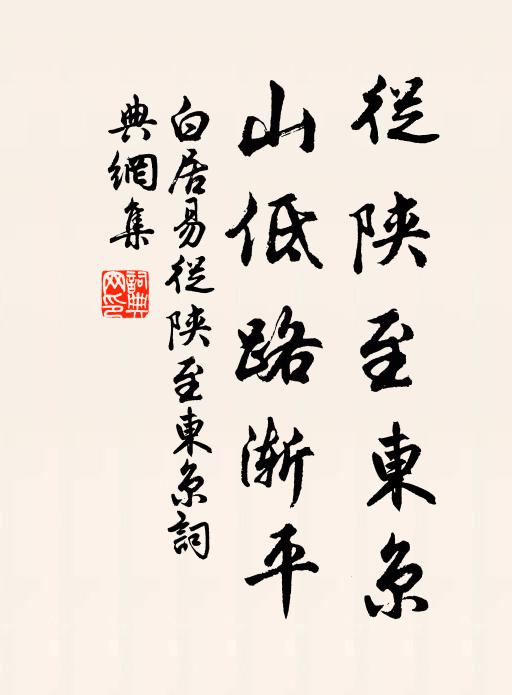 從陝至東京
山低路漸平
白居易從陝至東京詞
典網集
詞典
网印